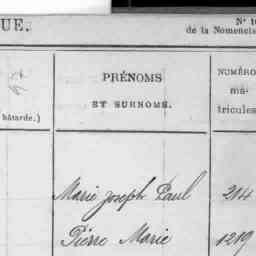 UE.
N° 10
de la Nomencla
PRÉNOMS
ET SURNOMS.
NUMÉRO
ma-
tricules
bâtarde.)
Marie Joseph Paul 214
Pierre Marie 1219